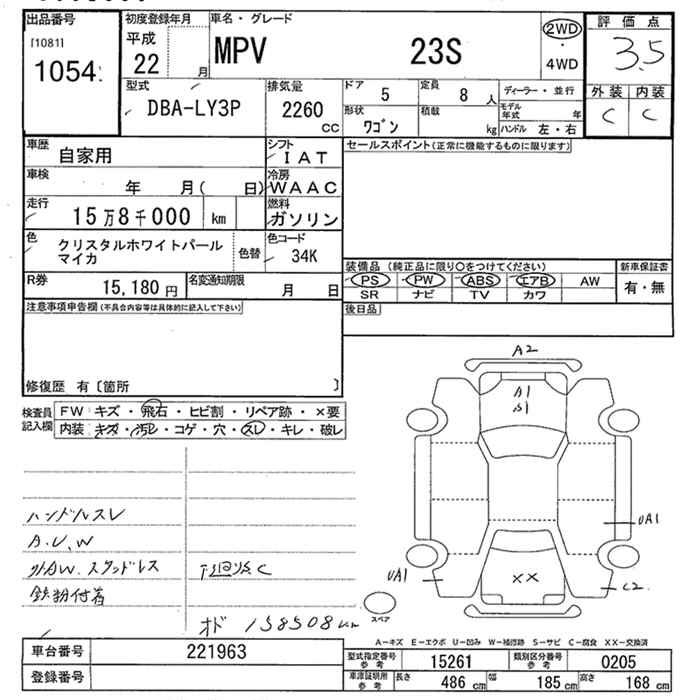 出品番号
[1081]
1054
初度登録年月
平成
22 月
車名・グレード
MPV 23S
2WD
・
4WD
評価点
3.5
外装 内装
C C
型式
DBA-LY3P
排気量
2260
cc
ドア
5
定員
8 人
形状
ワゴン
積載
kg
ディーラー・並行
モデル年式 年
ハンドル 左・右
車歴
自家用
シフト
IAT
車検
年 月( 日)
冷房
WAAC
走行
15万8千000 km
燃料
ガソリン
色
クリスタルホワイトパール
マイカ
色替
色コード
34K
R券
15,180円
名変通知期限
月 日
セールスポイント(正常に機能するものに限ります)
装備品(純正品に限り○をつけてください)
PS PW ABS エアB AW
SR ナビ TV カワ
新車保証書
有・無
注意事項申告欄(不具合内容等は具体的に記入して下さい)
後日品
修復歴 有〔箇所 〕
検査員
記入欄
FW キズ・飛石・ヒビ割・リペア跡・×要
内装 キズ・汚レ・コゲ・穴・スレ・キレ・破レ
ハンドルスレ
A.U.W
外AW.スタッドレス
鉄粉付着
オド 158508km
A2
A1
S1
UA1
UA1
××
C2
スペア
A−キズ E−エクボ U−凹み W−補修跡 S−サビ C−腐食 XX−交換済
車台番号
221963
登録番号
型式指定番号
参考
15261
類別区分番号
参考
0205
車庫証明用
参考
長さ 486 cm 幅 185 cm 高さ 168 cm